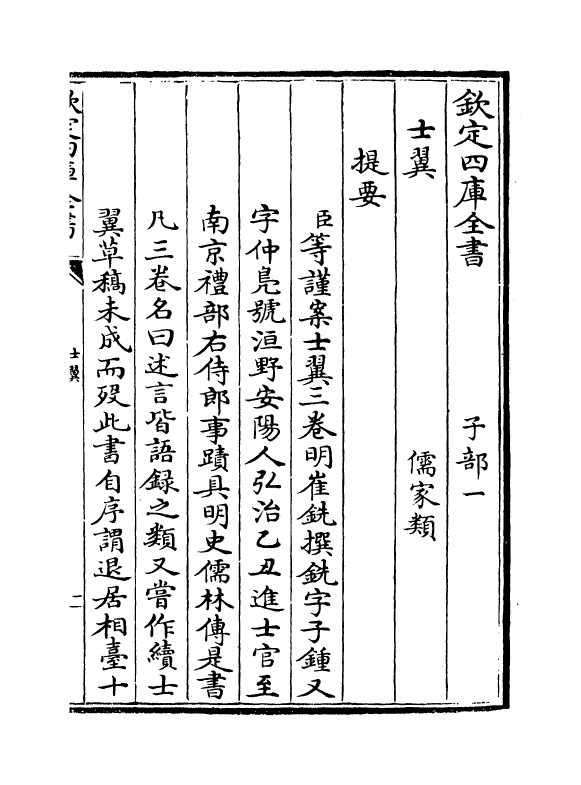 欽定四庫全書　子部一
士翼　儒家類
提要
臣等謹案士翼三卷明崔銑撰銑字子鍾又
字仲鳬號洹野安陽人弘治乙丑進士官至
南京禮部右侍郎事蹟具明史儒林傳是書
凡三卷名曰述言皆語録之類又嘗作續士
翼草稿未成而歿此書自序謂退居相臺十
欽定四庫全書　士翼　二